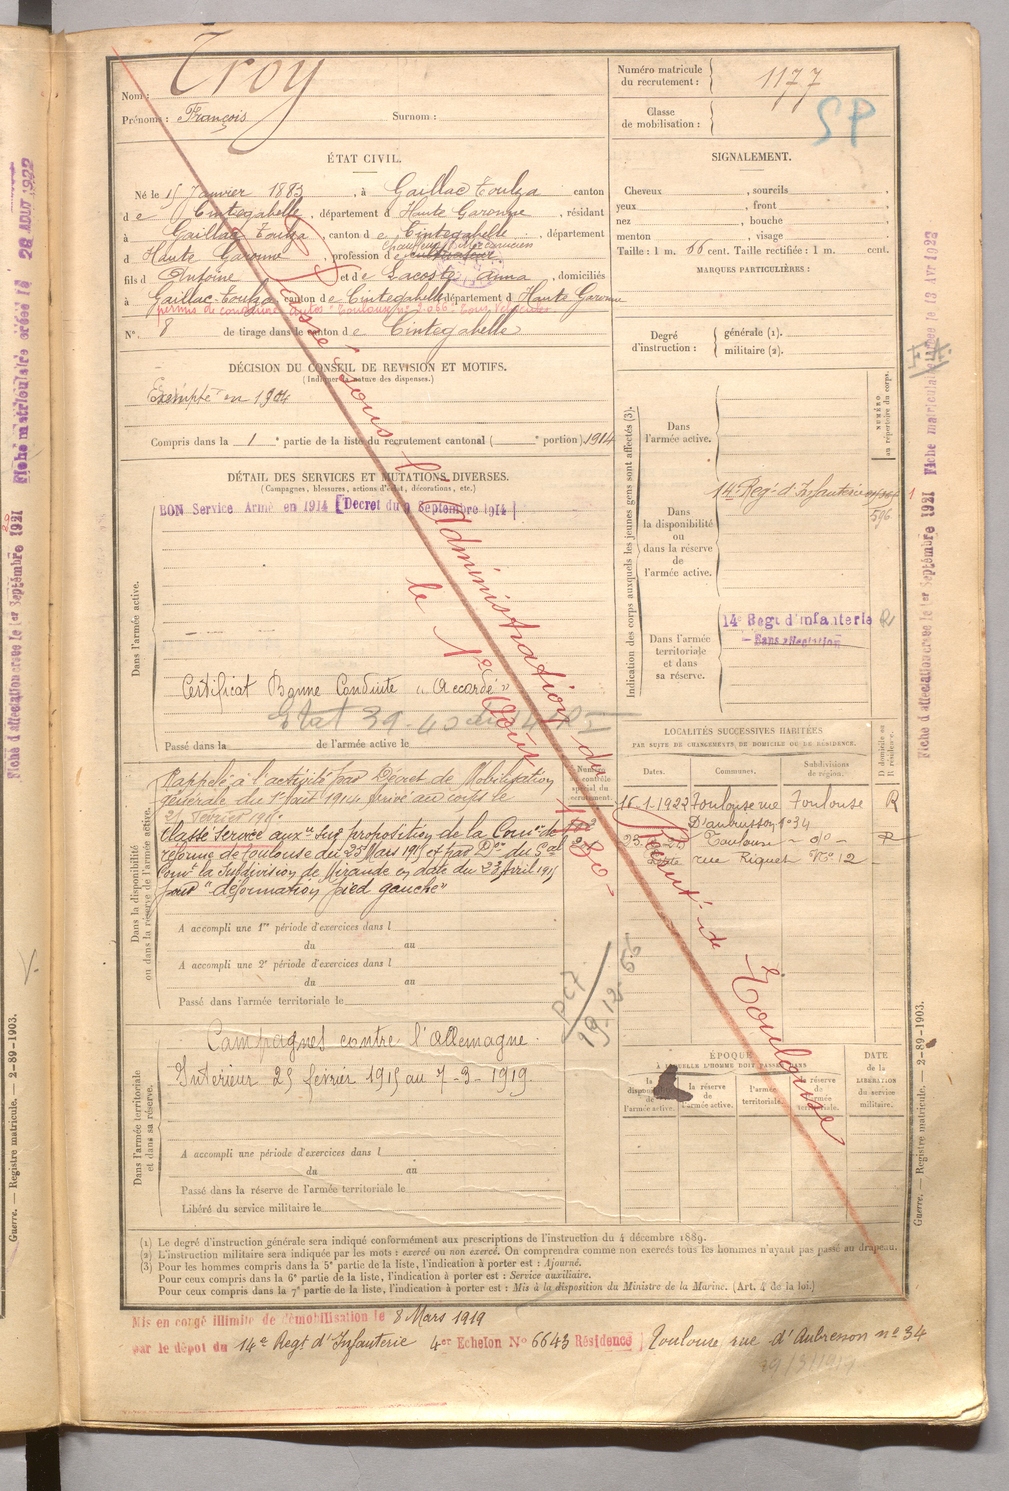 Nom : Troy
Prénoms : François Surnom :
Numéro matricule du recrutement : 1177
Classe de mobilisation :
SP
ÉTAT CIVIL.
Né le 15 Janvier 1883, à Gaillac Toulza canton
de Cintegabelle, département d Haute Garonne, résidant
à Gaillac Toulza, canton de Cintegabelle, département
Chauffeur Mécanicien
d Haute Garonne, profession de cultivateur
fils d Antoine et de Lacoste Anna, domiciliés
à Gaillac-Toulza, canton de Cintegabelle département d Haute Garonne
permis de conduire autos Toulouse
N°. 8 de tirage dans le canton de Cintegabelle
DÉCISION DU CONSEIL DE REVISION ET MOTIFS.
(Indiquer la nature des dispenses.)
Exempté en 1904
Compris dans la 1 e partie de la liste du recrutement cantonal ( e portion) 1914
DÉTAIL DES SERVICES ET MUTATIONS DIVERSES.
(Campagnes, blessures, actions d'éclat, décorations, etc.)
BON Service Armé en 1914 [Decret du 9 Septembre 1914]
Dans l'armée active.
Certificat Bonne Conduite "Accordé"
Etat 39-40 du 14 R I
Passé dans la de l'armée active le
Dans la disponibilité ou dans la réserve de l'armée active.
Rappelé à l'activité par Décret de Mobilisation
générale du 1er Août 1914 Arrivé au corps le
25 février 1915.
Classé service auxre sur proposition de la Comon de
réforme de Toulouse du 25 Mars 1915 et par Don du Gal
Comt la Subdivision de Mirande en date du 23 Avril 1915
pour "déformation pied gauche"
A accompli une 1re période d'exercices dans l
du au
A accompli une 2e période d'exercices dans l
du au
Passé dans l'armée territoriale le
Dans l'armée territoriale et dans sa réserve.
Campagnes contre l'Allemagne.
Intérieur 25 février 1915 au 7-3-1919.
A accompli une période d'exercices dans l
du au
Passé dans la réserve de l'armée territoriale le
Libéré du service militaire le
Numéro au contrôle spécial du recrutement.
SIGNALEMENT.
Cheveux , sourcils ,
yeux , front ,
nez , bouche ,
menton , visage
Taille : 1 m. 66 cent. Taille rectifiée : 1 m. cent.
MARQUES PARTICULIÈRES :
Degré d'instruction : générale (1).
militaire (2).
Indication des corps auxquels les jeunes gens sont affectés (3).
NUMÉRO au répertoire du corps.
Dans l'armée active.
Dans la disponibilité ou dans la réserve de l'armée active.
14e Regt d'Infanterie
596
Dans l'armée territoriale et dans sa réserve.
14e Regt d'infanterie R
— Sans affectation
LOCALITÉS SUCCESSIVES HABITÉES
PAR SUITE DE CHANGEMENTS DE DOMICILE OU DE RÉSIDENCE.
Dates. Communes. Subdivisions de région. D domicile ou R résidence.
16.1.1922 Toulouse rue Toulouse R
D'aubusson n°34
Toulouse - do - R
rue Riquet N° 12
ÉPOQUE
À LAQUELLE L'HOMME DOIT PASSER DANS
la disponibilité de l'armée active.
la réserve de l'armée active.
l'armée territoriale.
la réserve de l'armée territoriale.
DATE de la LIBÉRATION du service militaire.
Passé sous l'Administration du Recrut' de Toulouse
le 1er Août 1930
19-12-55
Guerre. — Registre matricule. 2-89-1903.
Guerre. — Registre matricule. — 2-89-1903.
Fiche d'affectation créée le 1er Septembre 1921
Fiche matriculaire créée le 28 AOUT 1922
Fiche d'affectation créée le 1er Septembre 1921
Fiche matriculaire créée le 13 Avr 1922
(1) Le degré d'instruction générale sera indiqué conformément aux prescriptions de l'instruction du 4 décembre 1889.
(2) L'instruction militaire sera indiquée par les mots : exercé ou non exercé. On comprendra comme non exercés tous les hommes n'ayant pas passé au drapeau.
(3) Pour les hommes compris dans la 5e partie de la liste, l'indication à porter est : Ajourné.
Pour ceux compris dans la 6e partie de la liste, l'indication à porter est : Service auxiliaire.
Pour ceux compris dans la 7e partie de la liste, l'indication à porter est : Mis à la disposition du Ministre de la Marine. (Art. 4 de la loi.)
Mis en congé illimité de démobilisation le 8 Mars 1919
par le dépot du 14e Regt d'Infanterie 4er Echelon N° 6643 Résidence ] Toulouse rue d'Aubusson n° 34